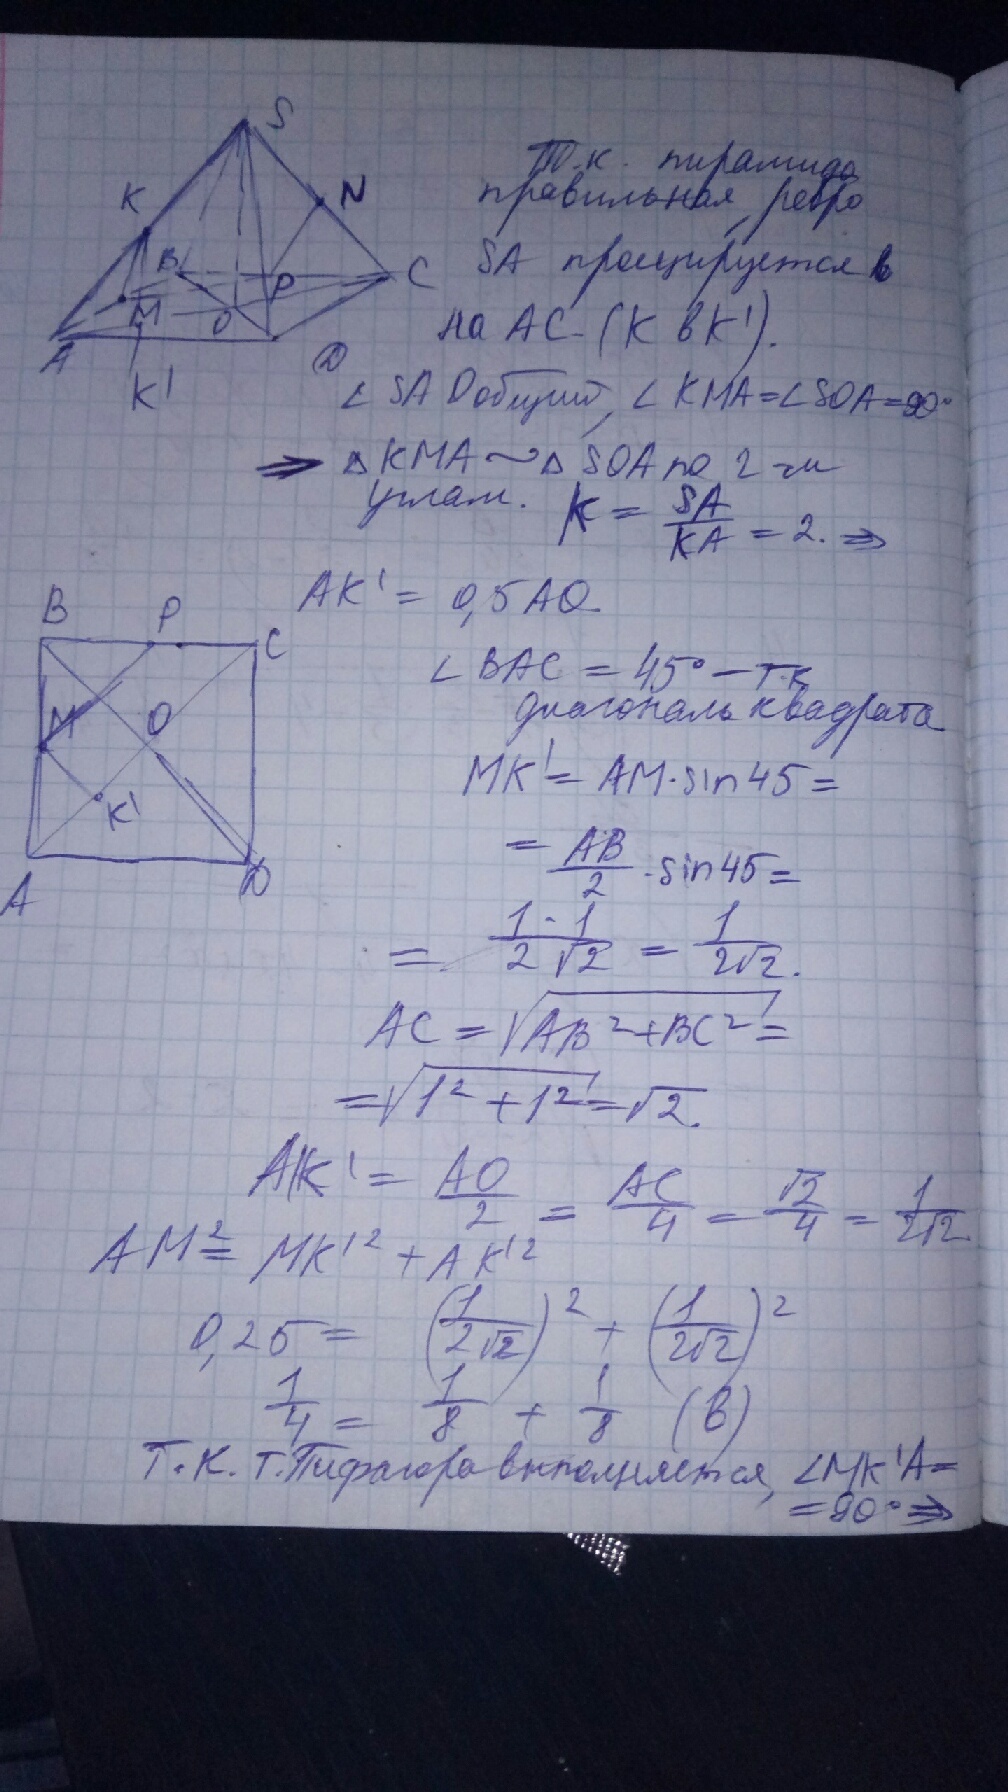 S
K
N
B
P
C
M
O
A
D
K'
Т.к. пирамида
правильная, ребро
SA проецируется в
на AC - (K в K').
∠ SAO общий, ∠ KMA = ∠ SOA = 90°
⇒ △ KMA ~ △ SOA по 2-м
углам. K = SA/KA = 2. ⇒
AK' = 0,5 AO
B P C
M O
K'
A D
∠ BAC = 45° - т.к
диагональ квадрата
MK' = AM · sin 45 =
= AB/2 · sin 45 =
= 1·1/2√2 = 1/2√2.
AC = √AB² + BC² =
= √1² + 1² = √2.
AK' = AO/2 = AC/4 = √2/4 = 1/2√2
AM² = MK'² + AK'²
0,25 = (1/2√2)² + (1/2√2)²
1/4 = 1/8 + 1/8 (В)
Т.К. т. Пифагора выполняется, ∠MK'A =
= 90° ⇒